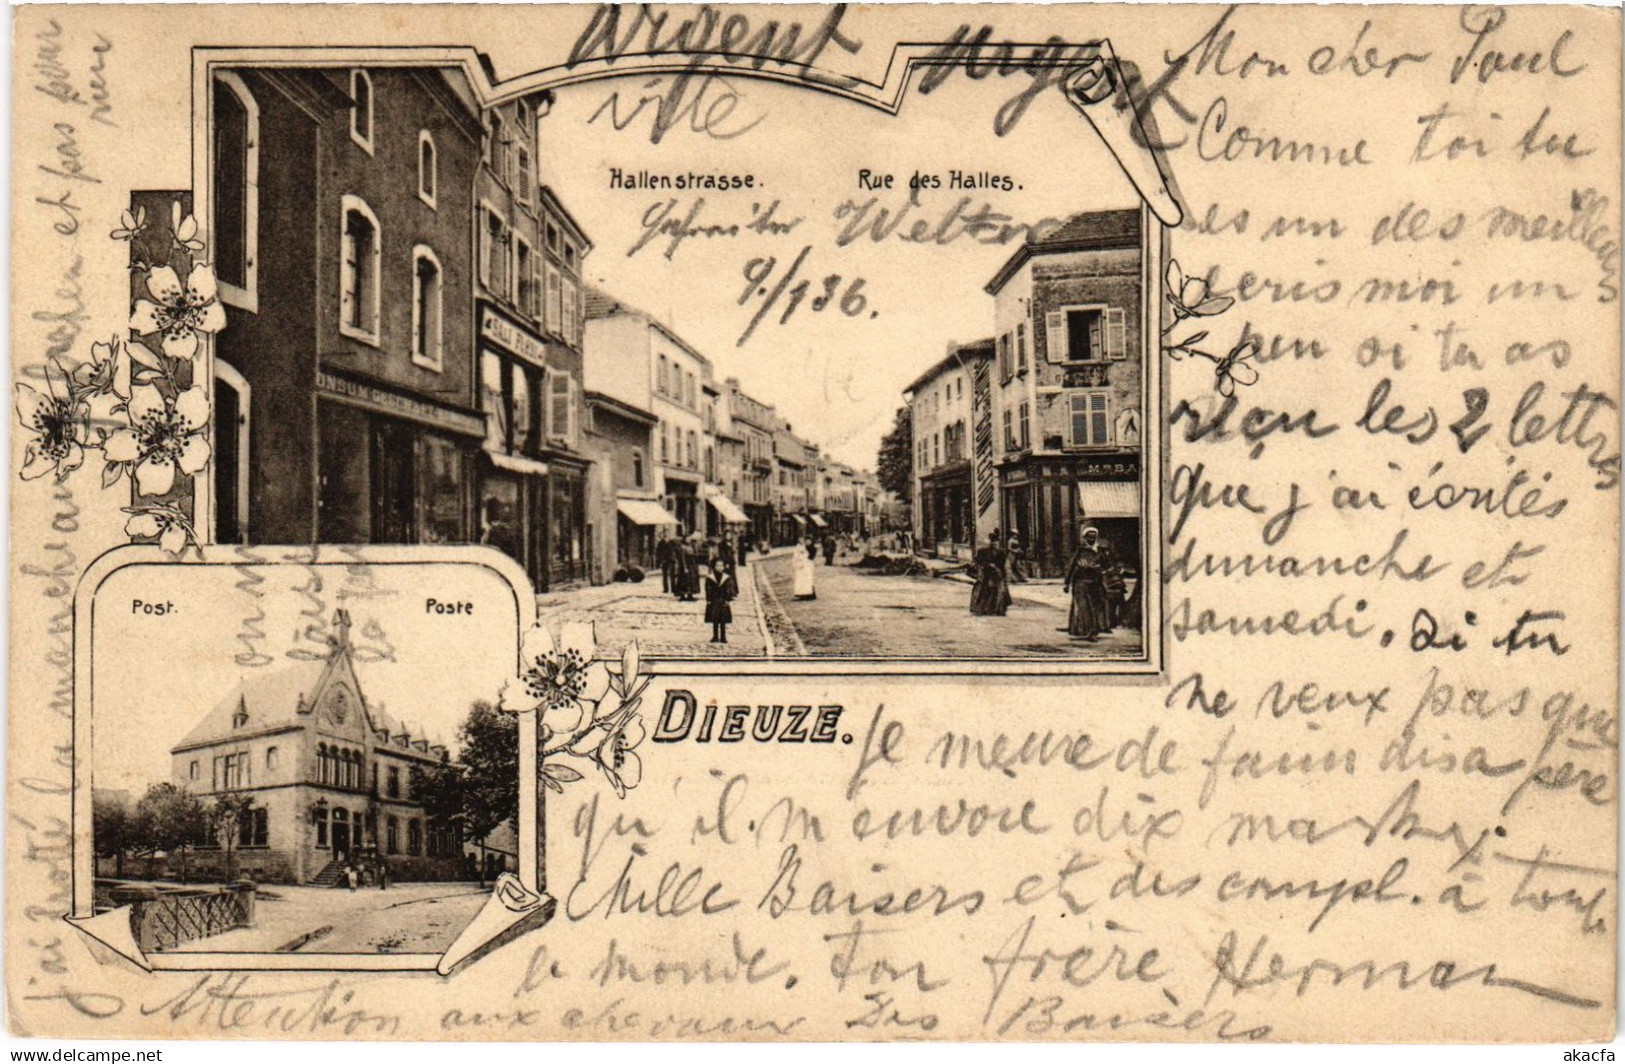 Urgent Urgent
ville
Hallenstrasse. Rue des Halles.
Gefreiter Welter
9./136.
Mon cher Paul
Comme toi tu
es un des meilleurs
écris moi un
peu si tu as
reçu les 2 lettres
que j'ai écrités
dimanche et
samedi. Si tu
ne veux pas que
Je meure de faim dis a père
qu'il m'envoie dix marks.
Mille Baisers et des compl. à toute
le monde. Ton frère Herman
Attention aux chevaux Des Baisers
DIEUZE.
Post. Poste
on m
laisse
j'ai frotté la manche au et pas pour
rien
akacfa